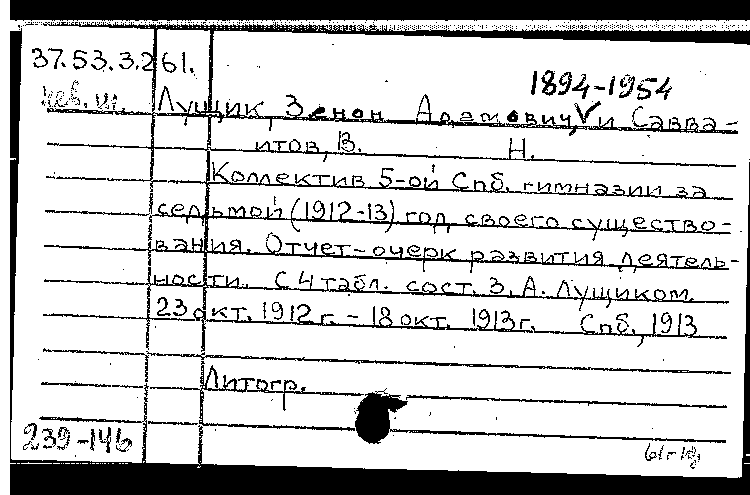 37.53.3.261.
1894-1954
Лущик, Зенон Адамович, и Савва-
итов, В. Н.
Коллектив 5-ой Спб. гимназии за
седьмой (1912-13) год своего существо-
вания. Отчет-очерк развития деятель-
ности. С 4 табл. сост. З. А. Лущиком.
23 окт. 1912 г. - 18 окт. 1913 г. Спб., 1913
Литогр.
239-146